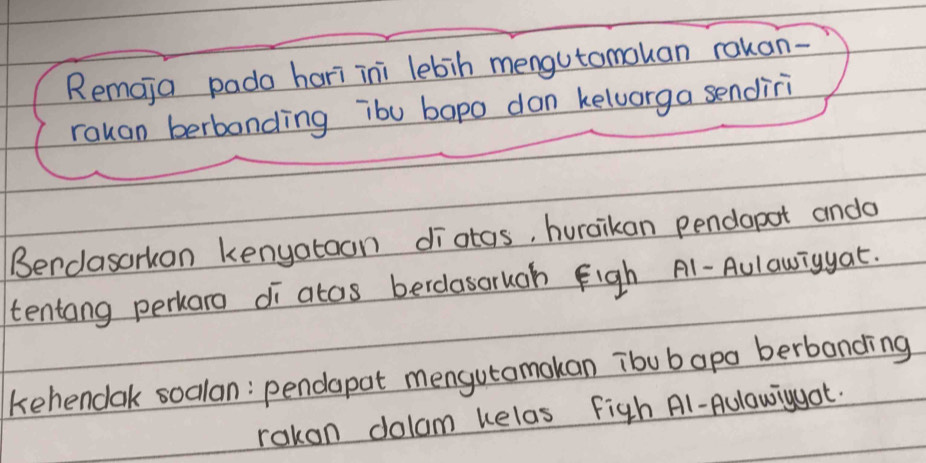 Remaja pada hari ini lebih mengutamakan rakan-
rakan berbanding ibu bapa dan keluarga sendiri
Berdasarkan kenyataan di atas, huraikan pendapat anda
tentang perkara di atas berdasarkan Fiqh Al-Aulawiyyat.
Kehendak soalan: pendapat mengutamakan ibu bapa berbanding
rakan dalam kelas Fiqh Al-Aulawiyyat.